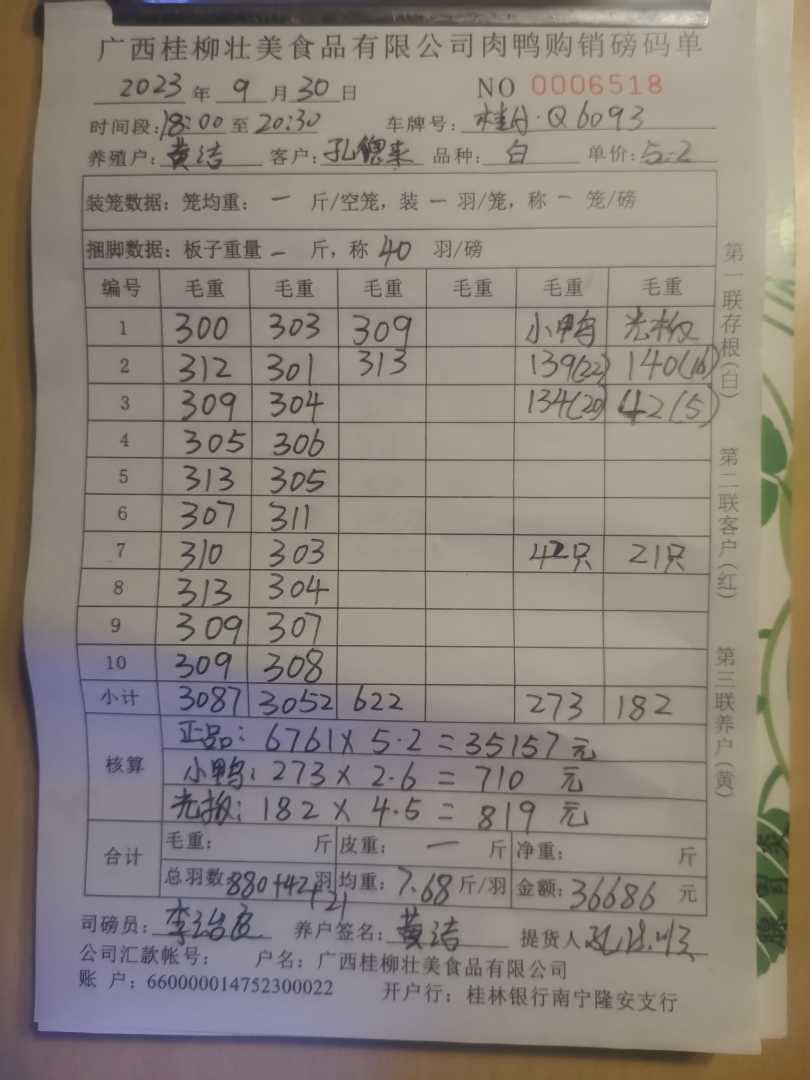 广西桂柳壮美食品有限公司肉鸭购销磅码单
2023 年 9 月 30 日 NO 0006518
时间段: 18:00 至 20:30 车牌号: 桂A·Q6093
养殖户: 黄洁 客户: 孔 来 品种: 白 单价: 5.2
装笼数据: 笼均重: 一 斤/空笼, 装 一 羽/笼, 称 一 笼/磅
捆脚数据: 板子重量 一 斤, 称 40 羽/磅
编号 毛重 毛重 毛重 毛重 毛重 毛重
1 300 303 309 小鸭 光板
2 312 301 313 139(22) 140(16)
3 309 304 134(20) 42(5)
4 305 306
5 313 305
6 307 311
7 310 303 42只 21只
8 313 304
9 309 307
10 309 308
小计 3087 3052 622 273 182
核算
正品: 6761 X 5.2 = 35157 元
小鸭: 273 X 2.6 = 710 元
光板: 182 X 4.5 = 819 元
合计
毛重: 斤 皮重: 一 斤 净重: 斤
总羽数: 880+42+21 羽 均重: 7.68 斤/羽 金额: 36686 元
司磅员: 李治 养户签名: 黄洁 提货人
公司汇款帐号: 户名: 广西桂柳壮美食品有限公司
账 户: 660000014752300022 开户行: 桂林银行南宁隆安支行
第一联存根(白)
第二联客户(红)
第三联养户(黄)